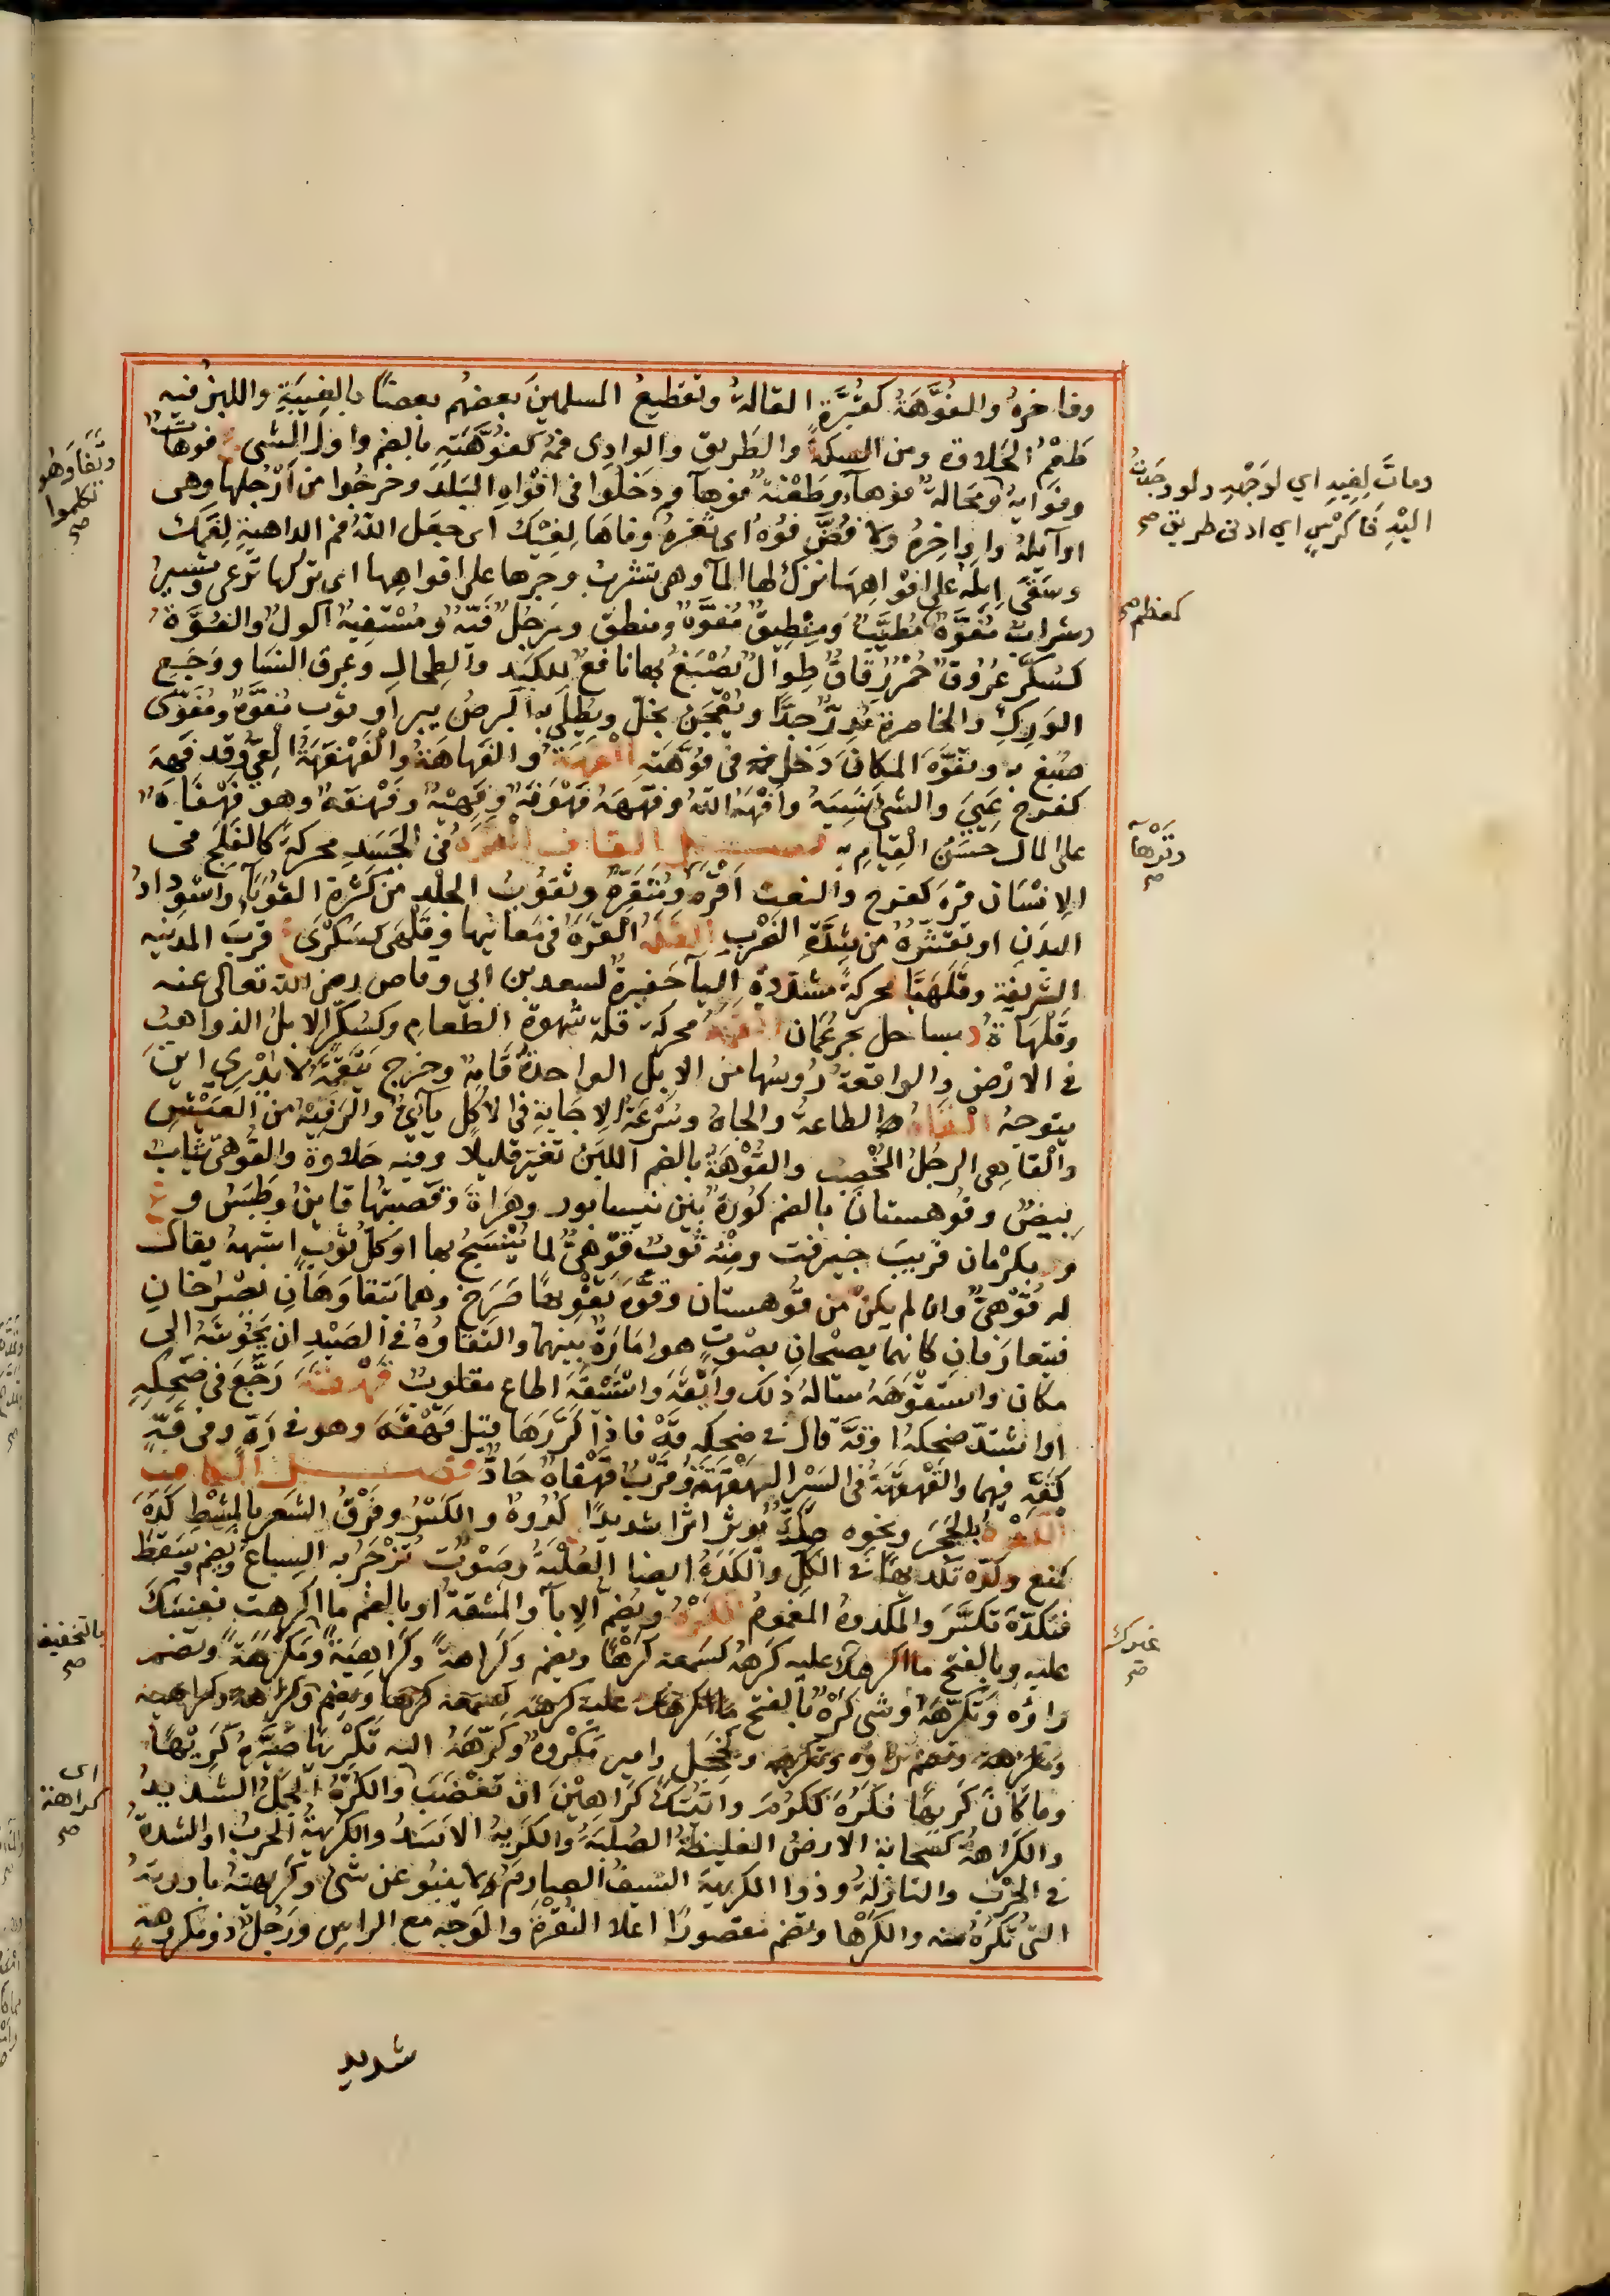 وفاخره والفُوَّهَةُ كقُبَّرَةٍ القالةُ وتقطيعُ المسلمينَ بعضُهم بعضاً بالغِيبَةِ واللبنُ فيه
طَعْمُ الحَلاوةِ ومن السكةِ والطَريقِ والوادِى فمُهُ كفُوْهَتِهِ بالضم واول الشى ج فوهاتٌ
وفوايهُ ومَحَالةٌ فوهآءُ وطَعْنةٌ فوهآءُ ودَخَلُوا فى افْواهِ البَلَدِ وخَرجُوا من اَرْجُلِها وهى
اوآيلُهُ واواخِرُهُ ولا فُضَّ فُوْهُ اى ثَغْرُهُ وفاهَا لِفِيْكَ اى جعَل اللهُ فمَ الداهيةِ لِفَمِكَ
وسَقَى اِبِلَهُ على افْواهِهَا نزَكَ لها المآءَ وهى تشربُ وجرّها على افواهِها اى تركها تَرعى وتسيرُ
وشرابٌ مُفَوَّهٌ مُطيَّبٌ ومِنْطِيقٌ مُفَوَّهٌ ومنطق ورَجُلٌ فَيِّهٌ ومُسْتَفِيهٌ اكولٌ والفُوَّهُ
كسُكّرٍ عُرُوقٌ حُمْرٌ رِقاقٌ طِوالٌ يُصْبَغُ بها نافعٌ للكَبِدِ والطِحالِ وعِرق النَسَا ووَجَعِ
الوَرِكِ والخاصرةِ مُدِرٌّ جدًّا ويُعْجَن بخلٍّ ويُطلَى به البرصُ يبرا وثوب مُفَوَّهٌ ومُفَوّىً
صُبِغَ به وتفَوَّهَ المكانَ دَخَل فى فُوَّهَتِهِ الفَهَّةُ والفَهاهَةُ والفَهْفَهَةُ العِىُّ وقد فَهِهَ
كفرح عَيِيَ والشىَ نَسِيَهُ وافَهَّهُ اللهُ وفَهَّهَهُ فهو فَهٌّ وفَهِيْهٌ وفَهْفَهٌ وهو فَهْفَاهٌ
على المال حَسَنُ القِيامِ به فصل القاف القَرَهُ فى الجَسَدِ محركةً كالقَلَحِ فى
الاِنْسَان قَرِهَ كفرح والنعت اَقْرَهُ ومُتَقَرِّهٌ وتقوّبُ الجلْدِ من كَثْرةِ القُوَبآءِ واسْوِدادُ
البدَنِ او تقشّرُهُ من شِدَّةِ الضَرْبِ القَلَهُ القَرَهُ فى مَعَانِيها وقَلَهَى كسَكْرَى ع قربَ المدينه
الشريفة وقَلَهَيَّا محركةً مشددةَ اليآءِ حَفيرةٌ لسعد بن ابي وقاص رضى الله تعالى عنه
وقَلْهَاةُ د بساحل بحر عُمَان القَمَهُ محركةً قلةُ شَهوةِ الطعام وكسُكّرٍ الابلُ الذواهبُ
فى الارْضِ والواقعةُ رُوسُها من الابل الواحدةُ قامِهٌ وخرج يتَقَمَّهُ لا يَدْرِى اين
يتوجهُ القَاهُ الطاعةُ والجاهُ وسُرْعَةُ الاِجَابةِ فى الاكْلِ يآئِىٌّ والرَفِيْهُ من العَيْشِ
والقاهى الرجلُ المُخْصِبُ والقُوْهَةُ بالضم اللبَنُ تغيّرَ قليلاً وفيه حَلاوة والقُوهِىُّ ثيابٌ
بيضٌ وقُوهستانُ بالضم كُورَةٌ بين نيسابور وهَراةَ وقصبتُها قاينُ وطَبَسُ وع
و د بكِرْمان قربَ جيرفت ومِنْهُ ثَوبٌ قُوْهِىٌّ لما يُنْسَجُ بها او كلُّ ثوبٍ اشبهَهُ يقال
له قُوْهِىٌّ وان لم يكنْ من قُوهستان وقوَّهَ تَقْوِيْهًا صَرَخَ وهما يَتقاوَهَانِ يصْرُخانِ
فيتعارَفانِ كانهما يصيْحانِ بصوتٍ هو امَارَةٌ بينهما والتقاوُهُ فى الصَيْدِ ان يَحُوْشَهُ الى
مكان واستقوَهَهُ سالَهُ ذلك وايقَهَ واسْتَيْقَهَ اطاع مقلوبٌ قَهْقَهَ رَجَّعَ فى ضَحِكِهِ
اوا شتدّ ضحكهُ او قَهَّ قال فى ضحكِهِ قَهْ فاذا كَرَّرَهَا قيل قَهْقَهَ وهو فى زَهٍ وفى قَهٍ
كَقَهْ فيهما والقَهْقَهَةُ فى السَيْر الهَقْهَقَةُ وقَرَبٌ قَهْقَاهٌ جَادٌّ فصل الكاف
الكَدْهُ بالحَجَرِ ونحوِه صَكٌّ يُوثّرُ اثرا شديدًا ج كُدُوهٌ والكَسْرُ وفَرْقُ الشَعرِ بالمِشْطِ كَدَهَ
كمنع وكَدَّه تَكْدِيهًا فى الكُلّ والكَدْهُ ايضا الغَلَبَةُ وصَوْتٌ تُزْجَرُ به السِباعُ ويضم وسَقَطَ
فتكدّهَ تكسَّرَ والمكدوهُ المغمومُ الكَرْهُ ويُضَمُّ الاِبآءُ والمشقةُ او بالضم ما اكرهتَ نفسَكَ
عليه وبالفتح ما اكرهكَ عليه كَرِهَهُ كسَمِعَه كَرْهًا ويضم وكَراهةً وكَراهيَةً ومَكْرَهَةً وتضم
راؤه وتَكَرَّهَهُ وشى كَرْهٌ بالفتح
وكخَجِلٍ وامير مَكْرُوهٌ وكرّهَهُ اليه تكْرِيهًا صَيَّرهُ كَرِيْهًا
وما كانَ كَرِيهًا فكَرُهَ ككَرُمَ واَتَيْتُكَ كَراهِيْنَ ان تغضَبَ والكَرْهُ الجمَلُ الشديدُ
والكَراهةُ كسَحابة الارضُ الغليظةُ الصُلبَةُ والكَرِيهُ الاسَدُ والكَرِيْهَةُ الحَربُ او الشِدةُ
فى الحَرْبِ والنازلةُ وذوا الكرِيهةِ السيفُ الصارِمُ لا يَنْبُو عن شىٍ وكَريهتُهُ بادرتهُ
التى تُكرَهُ منه والكَرْها وتضم مقصورًا اعلا النُقْرَةِ والوَجْه مع الراسِ ورَجُلٌ ذو مَكْروهةٍ
شديد
وماتَ لِفِيهِ اي لوَجْهِهِ ولو وجَدتُ
اليْهِ فَا كَرِشٍ اي ادنى طريق صح
كمعظم صح
وقَرْهآءُ
صح
عيرك
صح
وتَفَاوَهُو
تكلموا
صح
بالتخفيف
صح
اى
كراهة
صح